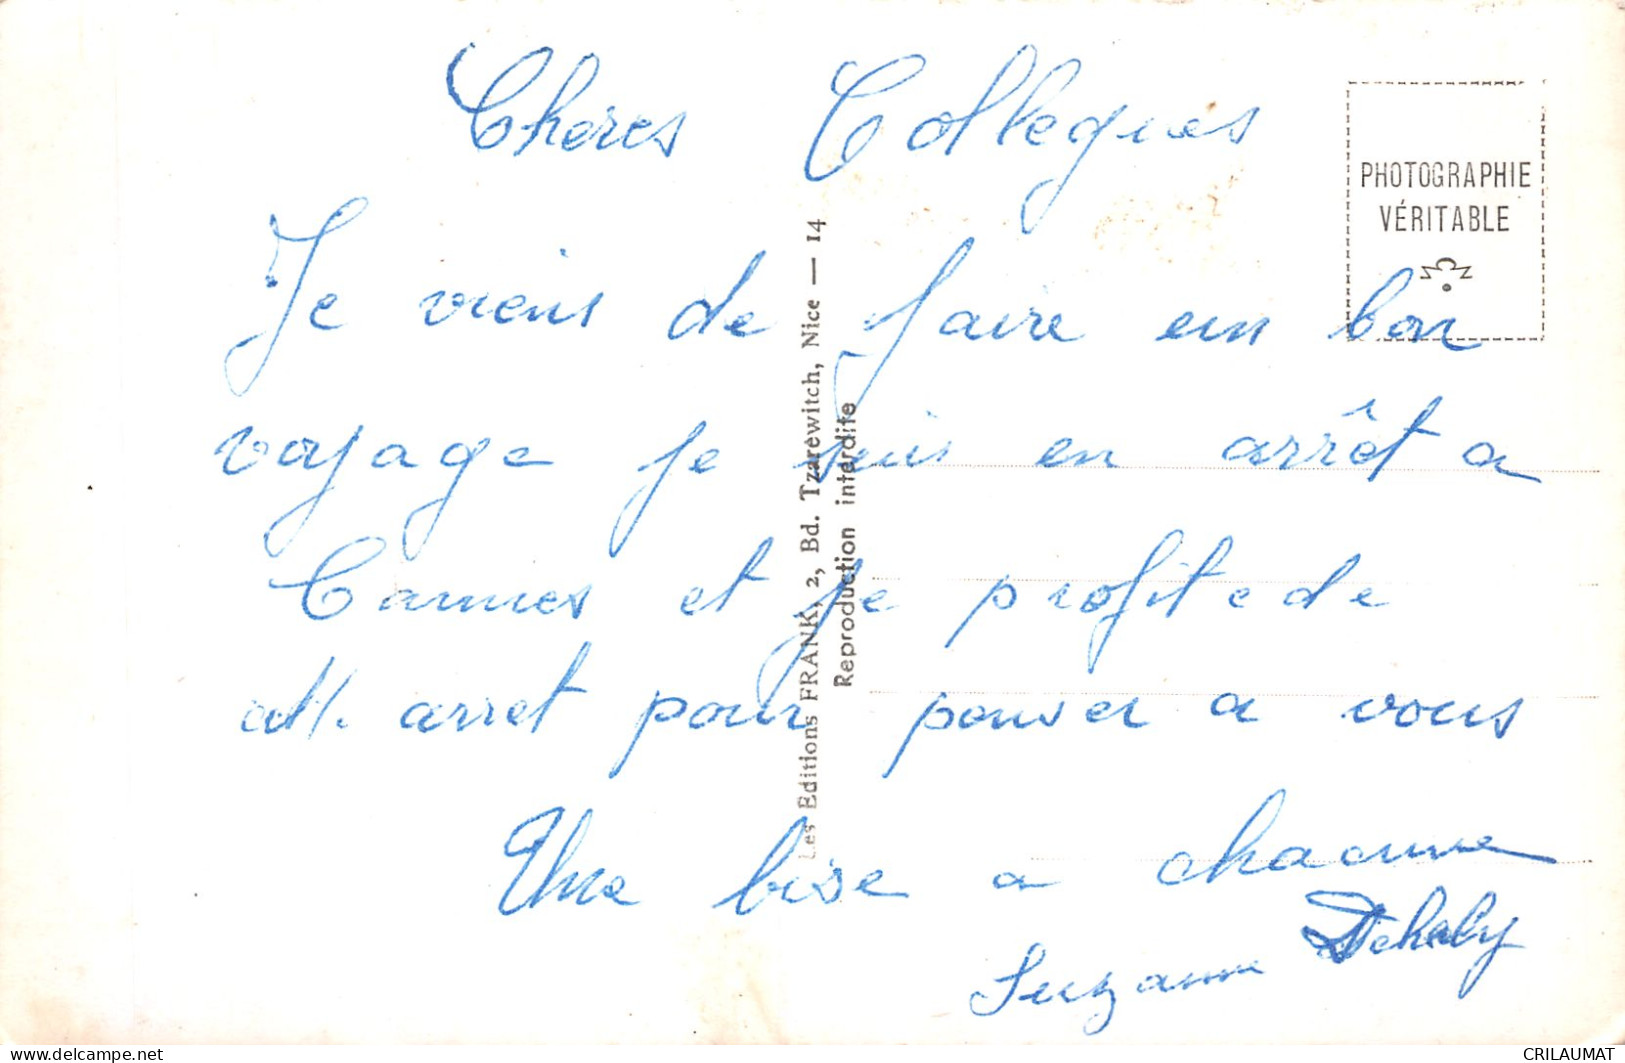 Cheres Collegues
Je viens de faire un bon
voyage je suis en arrêt a
Cannes et je profite de
arret pour penser a vous
Une bise a chacune
Suzanne
PHOTOGRAPHIE
VÉRITABLE
Les Editions FRANK, 2, Bd. Tzarewitch, Nice — 14
Reproduction interdite
www.delcampe.net
CRILAUMAT